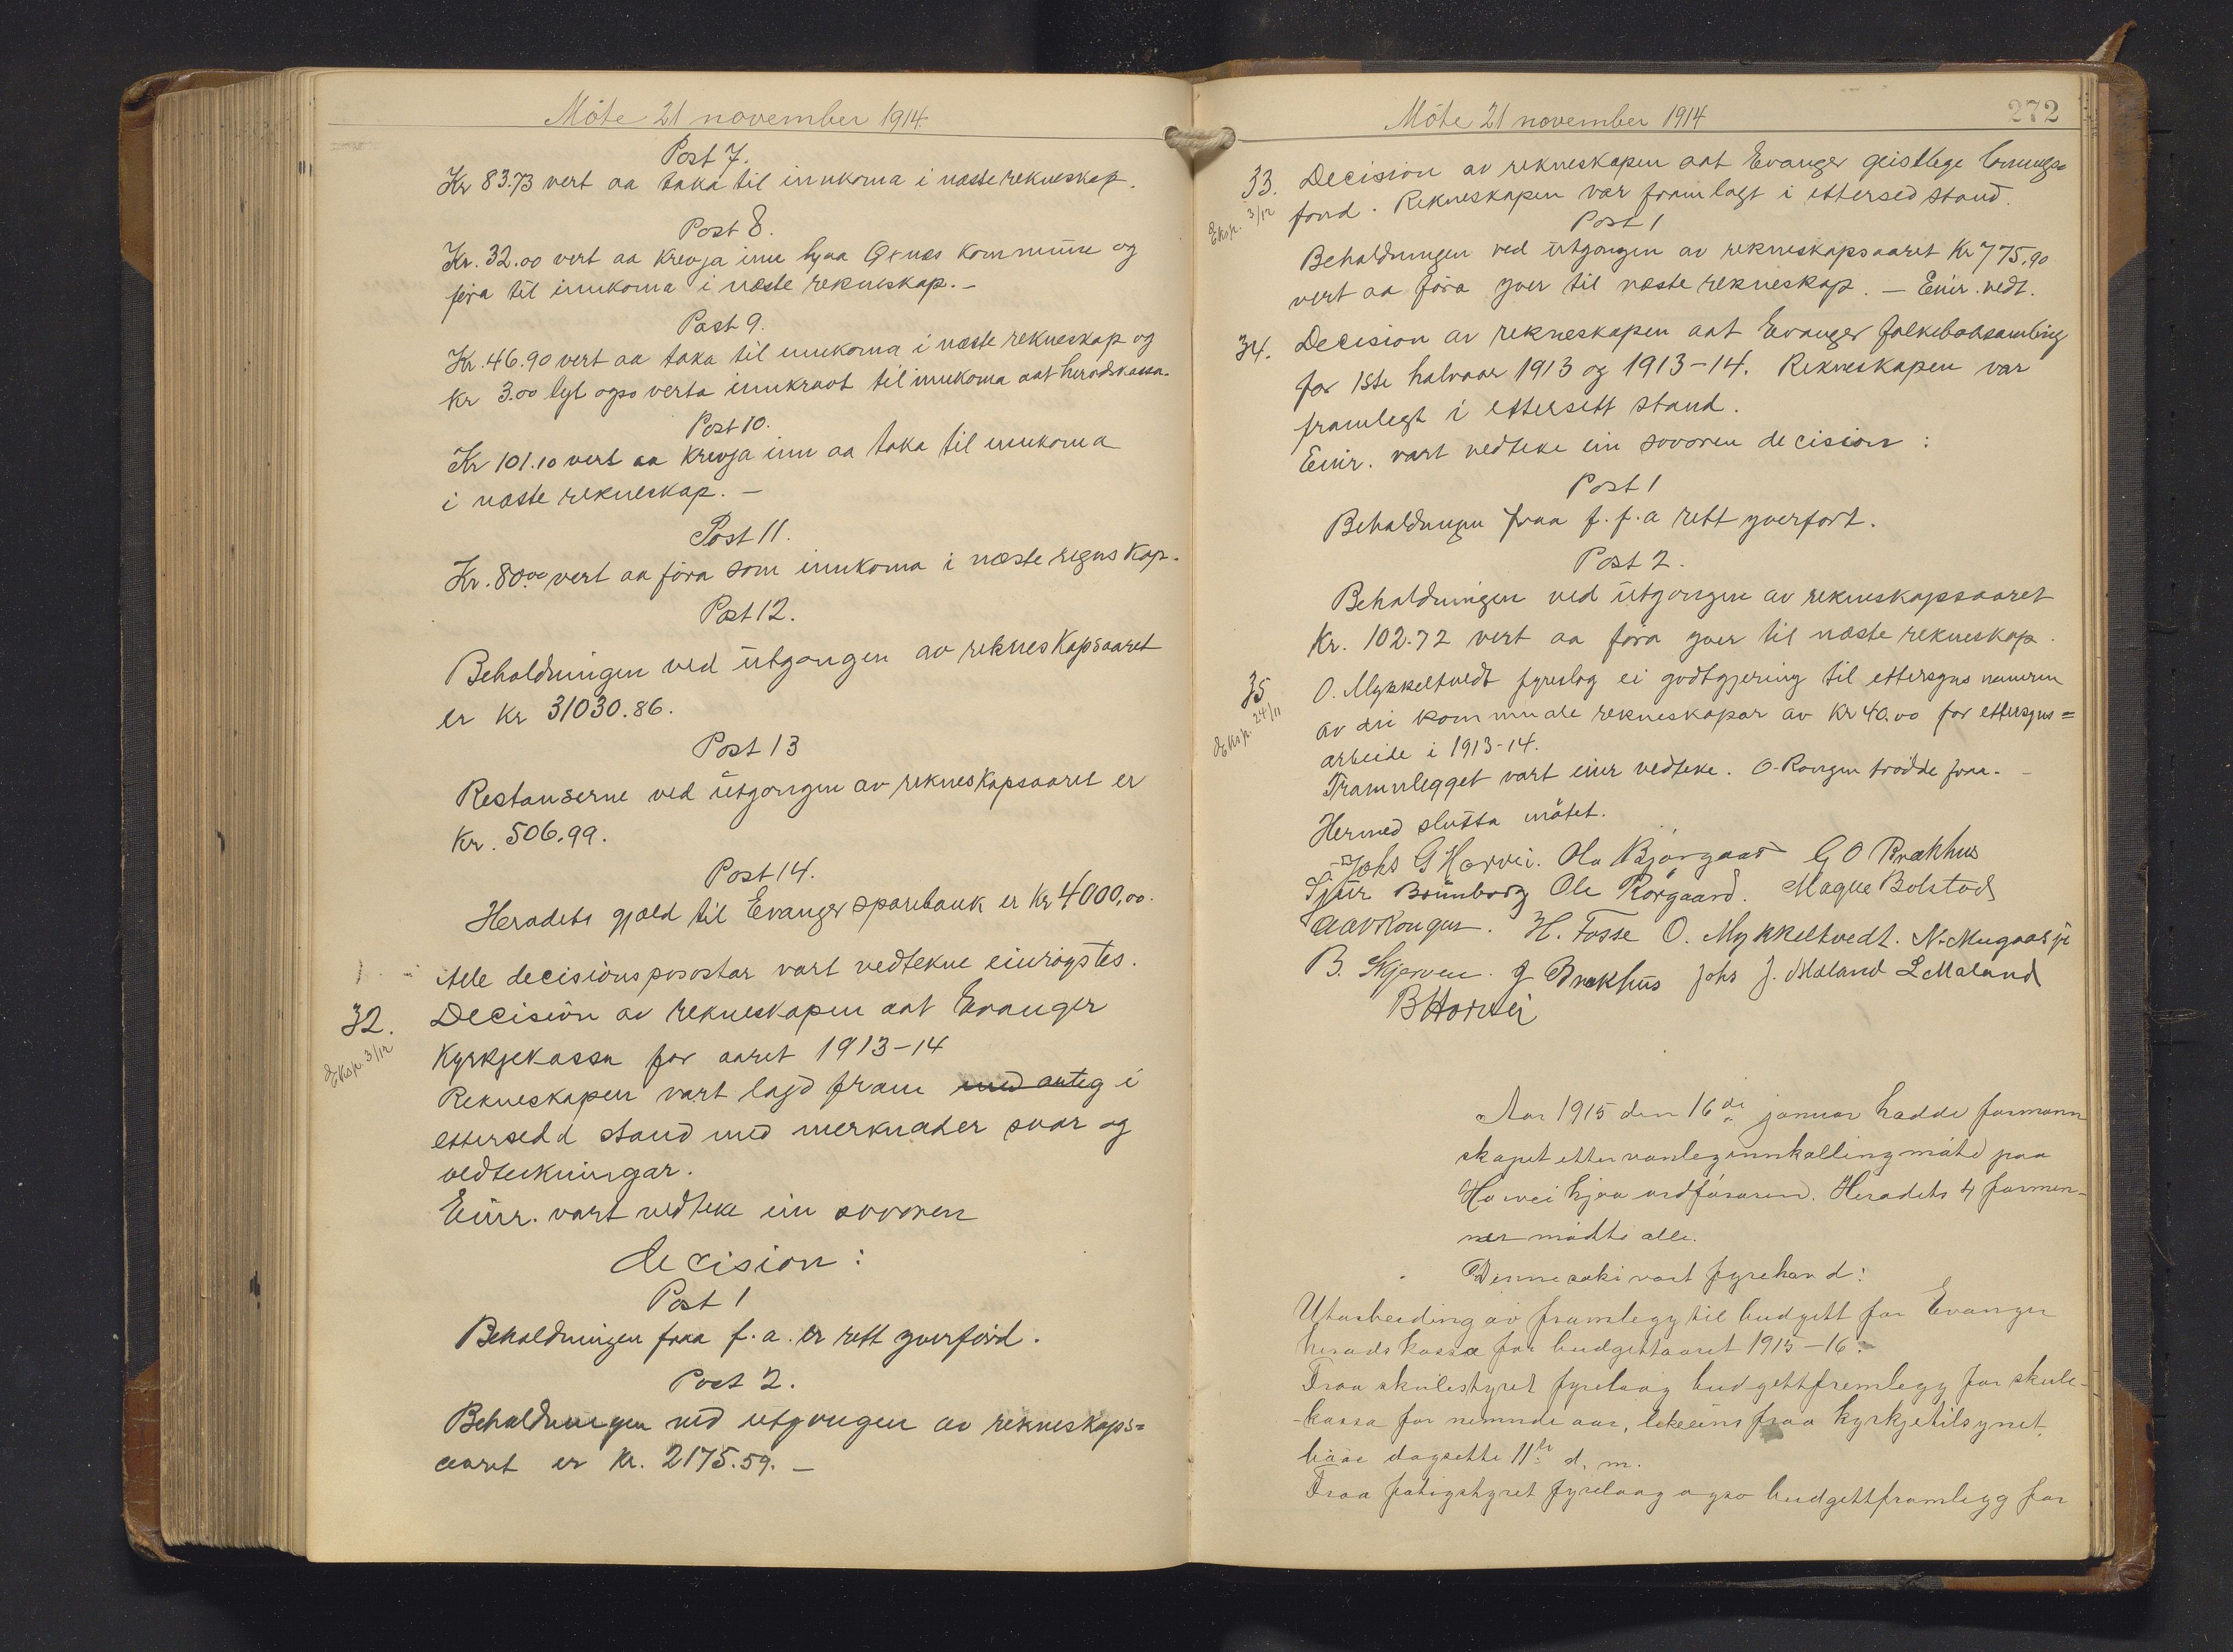 Möte 21 november 1914.
Post 7.
Kr 83.73 vert aa taka til innkoma i næste rekneskap.
Post 8.
Kr. 32.00 vert aa krevja inn hjaa Gxnes kommune og
föra til innkoma i næste rekneskap. –
Post 9.
Kr. 46.90 vert aa taka til innkoma i næste rekneskap og
kr 3.00 lyt ogso verta innkravt til innkoma aat heradskassa.
Post 10.
Kr 101.10 vert aa krevja inn aa taka til innkoma
i næste rekneskap. –
Post 11.
Kr. 80.00 vert aa föra som innkoma i næste regnskap.
Post 12.
Beholdningen ved ütgongen av rekneskapsaaret
er Kr 31030.86.
Post 13
Restanserne ved ütgongen av rekneskapsaaret er
Kr. 506.99.
Post 14.
Heradets gjæld til Evanger sparebank er Kr 4000,00.
Alle decisionsposostar vart vedtekne einrøystes.
32. Decision av rekneskapen aat Evanger
Eksp. 3/12 Kyrkjekassa for aaret 1913-14
Rekneskapen vart lagd fram med anteg i
ettersedd stand med merknader svar og
vedteckningar.
Einr. vart vedteke ein sovoren
decision:
Post 1
Beholdningen fraa f. a. er rett yverförd.
Post 2.
Beholdningen ved ütgongen av rekneskaps=
aaret er Kr. 2175.59. –
Möte 21 november 1914
272
33. Decision av rekneskapen aat Evanger geistlege lønnings=
Eksp. 3/12 fond. Rekneskapen var framlagt i ettersed stand.
Post 1
Beholdningen ved ütgongen av rekneskapsaaret Kr 775,90
vert aa föra yver til næste rekneskap. – Einr. vedt.
34. Decision av rekneskapen aat Evanger folkeboksamling
for 1ste halvaar 1913 og 1913-14. Rekneskapen var
framlegt i ettersett stand.
Einr. vart vedteke ein sovoren decision:
Post 1
Beholdningen fraa f. f. a rett yverfort.
Post 2.
Beholdningen ved ütgongen av rekneskapsaaret
Kr. 102.72 vert aa föra yver til næste rekneskap.
35 O. Mykkeltvedt fyreslog ei godtgjering til ettersyns nemnden
Eksp. 24/11 av dei kommunale rekneskapar av Kr 40.00 for ettersyns=
arbeide i 1913-14.
Framlegget vart einr vedteke. O. Rongen trødde fraa. –
Hermed slutta mötet.
Johs G Horvei. Ola Bjørgaas G O Brækhus
Sjur Brunborg Ole Rørgaard. Magne Bolstad
H. Fosse O. Mykkeltvedt. N. Mugaas
B. Skjerven. J Brækhus Johs J. Mæland L Mæland
B Horvei
Aar 1915 den 16de januar hadde formann
skapet etter vanleg innkalling möte paa
Horvei hjaa ordföraren. Heradets 4 formen-
ner mödte alle.
Denne saki vart fyrehavd:
Utarbeiding av framlegg til budgett for Evanger
heradskassa for budgettaaret 1915-16.
Fraa skulestyret fyrelaag budgettfremlegg for skule-
kassa for nemnde aar, likeeins fraa kyrkjetilsynet,
baae dagsette 11te d. m.
Fraa fatigstyret fyrelaag ogso budgettframlegg for